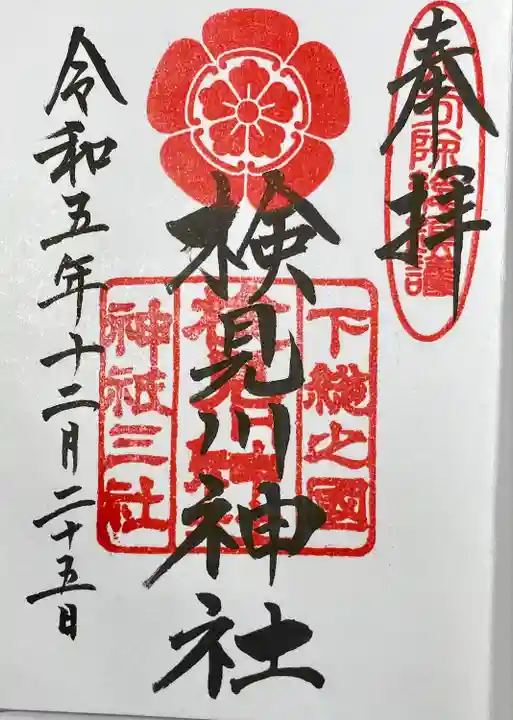 奉拝
検見川神社
下総之國
神祇三社
令和五年十二月二十五日